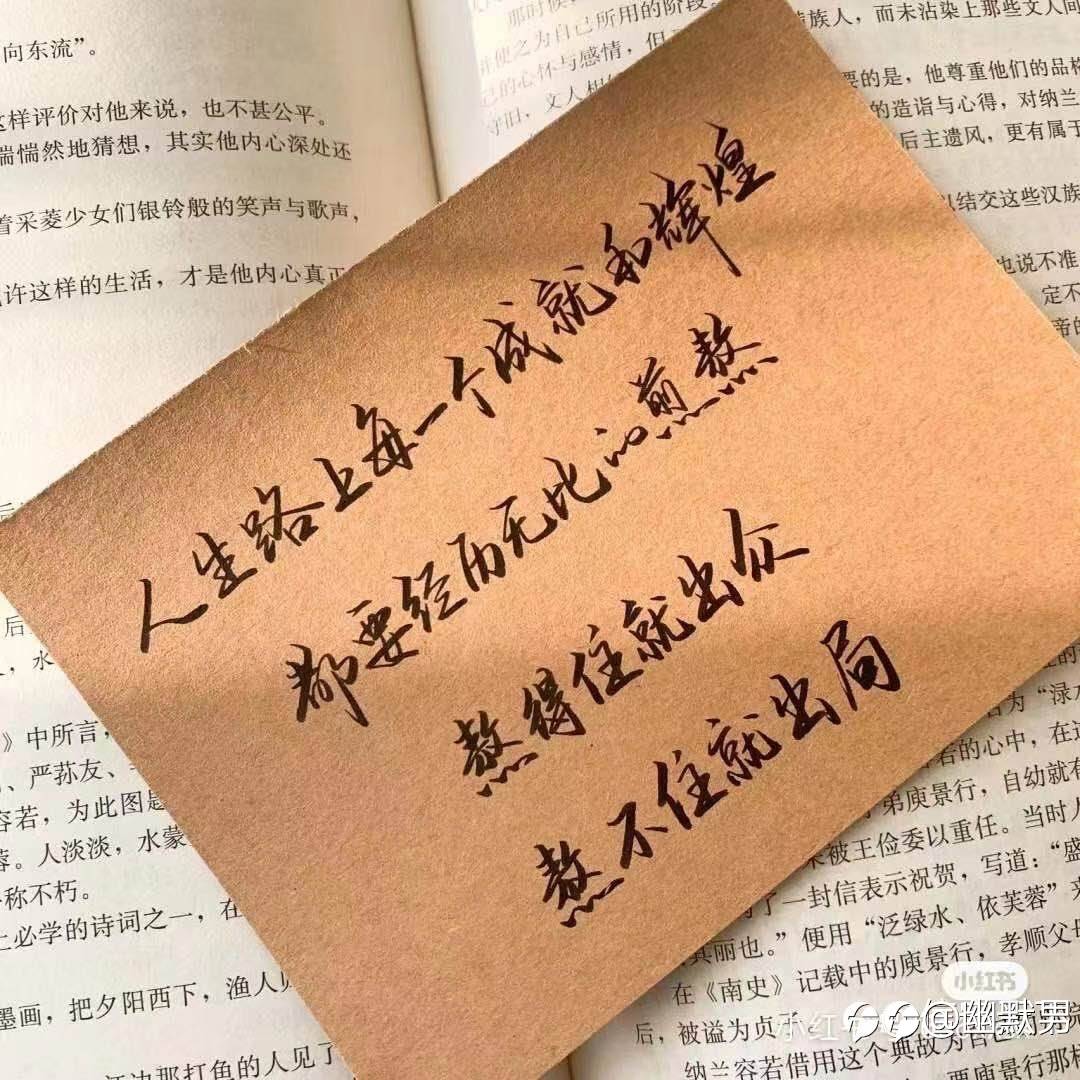 向东流”。
这样评价对他来说，也不甚公平。
惴惴然地猜想，其实他内心深处还
着采菱少女们银铃般的笑声与歌声，
许这样的生活，才是他内心真正
那时候
并使之为自己所用的阶段。
己的心怀与感情，但
守旧，文人相
族人，而未沾染上那些文人间
要的是，他尊重他们的品格
的造诣与心得，对纳兰
后主遗风，更有属于
以结交这些汉族
也说不准
定不
帝的
人生路上每一个成就和辉煌
都要经历无比的煎熬
熬得住就出众
熬不住就出局
后
，水
》中所言，
、严荪友、
容若，为此图题
蓉。人淡淡，水蒙
称不朽。
上必学的诗词之一，在
墨画，把夕阳西下，渔人
江边那打鱼的人见了
名为“渌水
若的心中，在这
弟庾景行，自幼就有
被王俭委以重任。当时人
了一封信表示祝贺，写道：“盛
其丽也。”便用“泛绿水、依芙蓉”来
在《南史》记载中的庾景行，孝顺父母
后，被谥为贞子
纳兰容若借用这个典故为自己
要庾景行那样
小红书
@幽默男